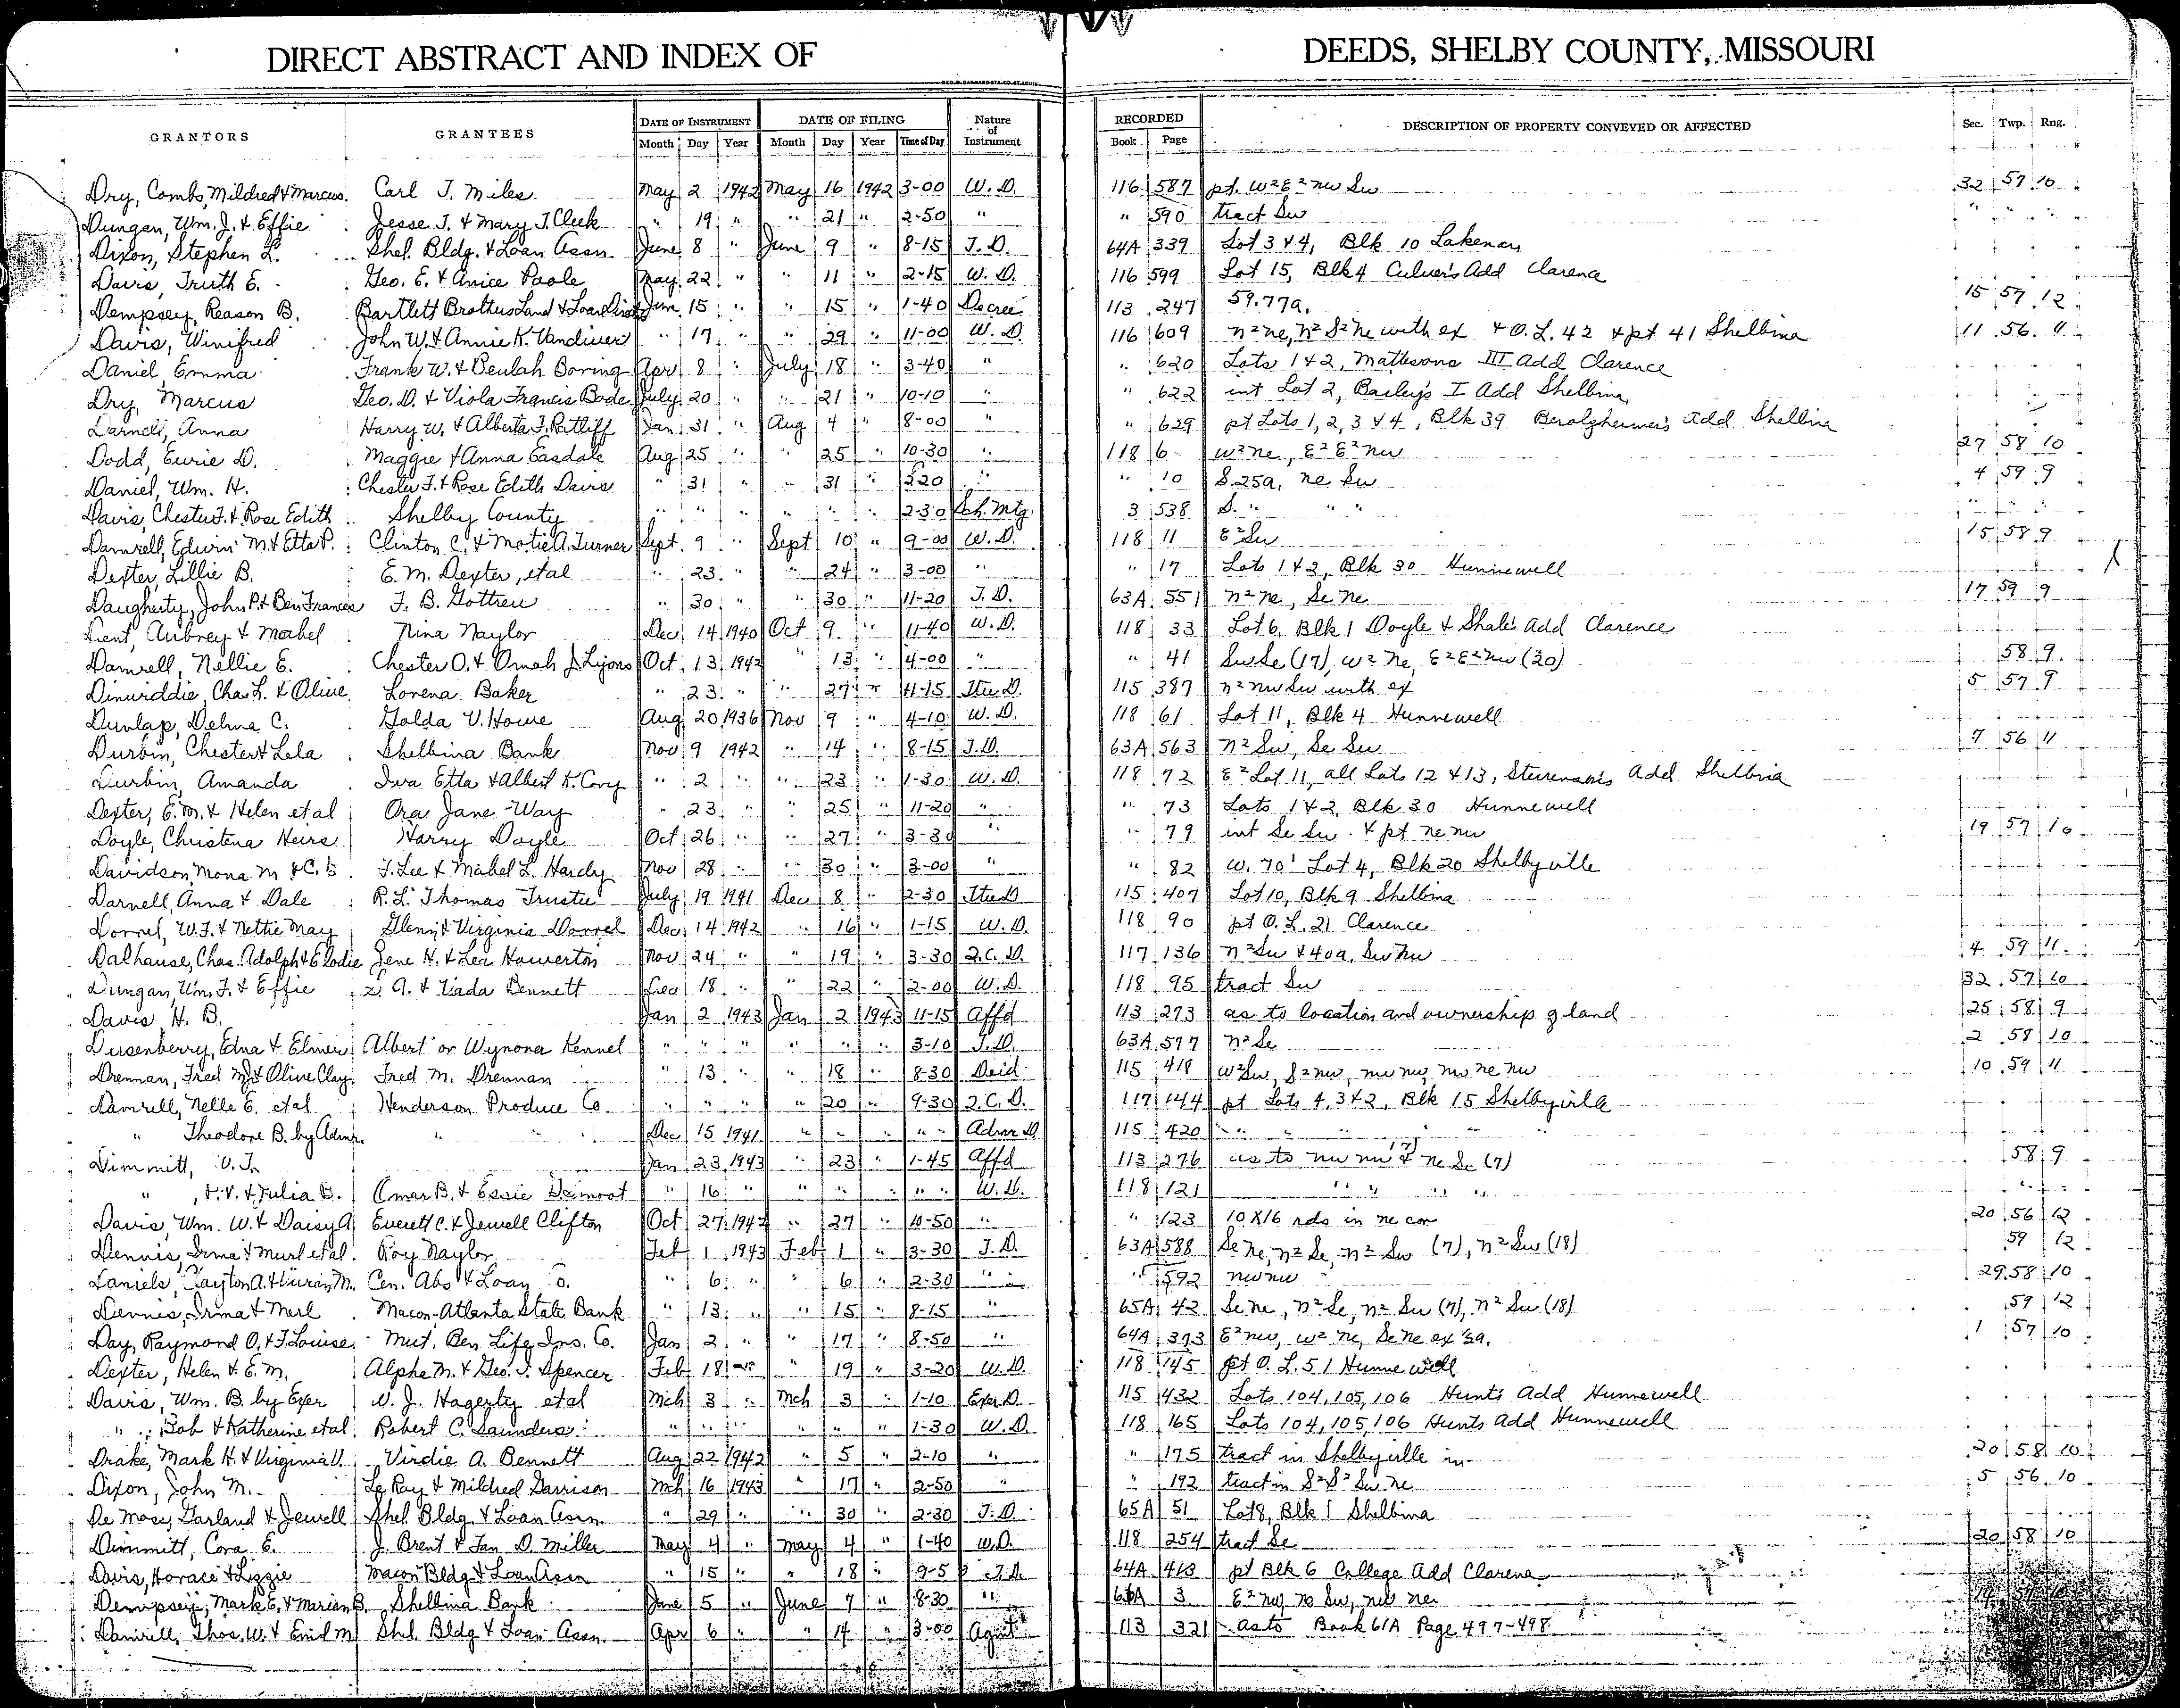 DIRECT ABSTRACT AND INDEX OF DEEDS, SHELBY COUNTY, MISSOURI
GRANTORS GRANTEES DATE OF INSTRUMENT DATE OF FILING Nature of Instrument RECORDED DESCRIPTION OF PROPERTY CONVEYED OR AFFECTED Sec. Twp. Rng.
Month Day Year Month Day Year Time of Day Book Page
Dry, Combs, Mildred & Marcus. Carl T. Miles May 2 1942 May 16 1942 3-00 W.D. 116 587 pt. W² E² nw Sw 32 57 10
Dungan, Wm. J. & Effie Jesse T. & Mary J. Cleek " 19 " " 21 " 2-50 " " 590 tract Sw " " "
Dixon, Stephen L. Shel. Bldg. & Loan Assn. June 8 " June 9 " 8-15 T.D. 64A 339 Lot 3 & 4, Blk 10 Lakenan
Davis, Truth E. Geo. E. & Anice Poole May 22 " " 11 " 2-15 W.D. 116 599 Lot 15, Blk 4 Culver's Add Clarence
Dempsey, Reason B. Bartlett Brothers Land & Loan June 15 " " 15 " 1-40 Decree 113 247 59.77a. 15 57 12
Davis, Winifred John W. & Annie K. Vandiver " 17 " " 29 " 11-00 W.D. 116 609 n² ne, n² S² ne with ex & O.L. 42 & pt 41 Shelbina 11 56 11
Daniel, Emma Frank W. & Beulah Boring Apr 8 " July 18 " 3-40 " " 620 Lots 1 & 2, Mathesons III Add Clarence
Dry, Marcus Geo. D. & Viola Francis Bode July 20 " " 21 " 10-10 " " 622 int Lot 2, Bailey's I Add Shelbina
Darnell, Anna Harry W. & Alberta F. Ratliff Jan 31 " Aug 4 " 8-00 " " 629 pt Lots 1, 2, 3 & 4, Blk 39 Berolzheimer's Add Shelbina
Dodd, Eurie D. Maggie & Anna Easdale Aug 25 " " 25 " 10-30 " 118 6 W² ne, E² E² nw 27 58 10
Daniel, Wm. H. Chester F. & Rose Edith Davis " 31 " " 31 " 2-20 " " 10 S. 25a, ne Sw 4 59 9
Davis, Chester F. & Rose Edith Shelby County " " " " " " 2-30 Sch. Mtg. 3 538 S. " " " " " "
Damrell, Edwin M. & Etta P. Clinton C. & Motie A. Turner Sept. 9 " Sept 10 " 9-00 W.D. 118 11 E² Sw 15 58 9
Dexter, Lillie B. E. M. Dexter, etal " 23 " " 24 " 3-00 " " 17 Lots 1 & 2, Blk 30 Hunnewell
Daugherty, John P. & Ben Frances F. B. Gottreu " 30 " " 30 " 11-20 T.D. 63A 551 n² ne, Se ne 17 59 9
Dent, Aubrey & Mabel Nina Naylor Dec 14 1940 Oct 9 " 11-40 W.D. 118 33 Lot 6, Blk 1 Doyle & Shale's Add Clarence
Damrell, Nellie E. Chester O. & Omah J. Lyons Oct. 13 1942 " 13 " 4-00 " " 41 Sw Se (17), W² ne, E² E² nw (20) 58 9
Dinwiddie, Chas. L. & Olive Lorena Baker " 23 " " 27 " 11-15 Tte D. 115 387 n² nw Sw with ex 5 57 9
Dunlap, Delma C. Golda V. Howe Aug 20 1936 Nov 9 " 4-10 W.D. 118 61 Lot 11, Blk 4 Hunnewell
Durbin, Chester & Lela Shelbina Bank Nov 9 1942 " 14 " 8-15 T.D. 63A 563 n² Sw, Se Sw 7 56 11
Durbin, Amanda Iva Etta & Albert K. Cory " 2 " " 23 " 1-30 W.D. 118 72 E² Lot 11, all Lots 12 & 13, Stevenson's Add Shelbina
Dexter, E. M. & Helen et al Ora Jane Way " 23 " " 25 " 11-20 " " 73 Lots 1 & 2, Blk 30 Hunnewell
Doyle, Christena Heirs Harry Doyle Oct 26 " " 27 " 3-30 " " 79 int Se Sw & pt ne nw 19 57 10
Davidson, Mona M & C. E. T. Lee & Mabel L. Hardy Nov 28 " " 30 " 3-00 " " 82 W. 70' Lot 4, Blk 20 Shelbyville
Darnell, Anna & Dale R. L. Thomas Trustee July 19 1941 Dec 8 " 2-30 Tte D 115 407 Lot 10, Blk 9 Shelbina
Dorrel, W. F. & Nettie May Glenn & Virginia Dorrel Dec. 14 1942 " 16 " 1-15 W.D. 118 90 pt O.L. 21 Clarence
Dalhause, Chas. Adolph & Elodie Gene H. & Lea Howerton Nov 24 " " 19 " 3-30 Q.C.D. 117 136 n² Sw & 40a, Sw nw 4 59 11
Dungan, Wm. F. & Effie A. & Vada Bennett Dec 18 " " 22 " 2-00 W.D. 118 95 tract Sw 32 57 10
Davis, H. B. Jan 2 1943 Jan 2 1943 11-15 Affd 113 273 as to location and ownership of land 25 58 9
Dusenberry, Edna & Elmer Albert or Wynona Kennel " " " " " " 3-10 T.D. 63A 577 n² Se 2 58 10
Drennan, Fred M. & Olive Clay Fred M. Drennan " 13 " 18 " 8-30 Deed 115 418 W² Sw, S² nw, nw nw, nw ne nw 10 59 11
Damrell, Nelle E. etal Henderson Produce Co. " " " " 20 " 9-30 Q.C.D. 117 144 pt Lots 4, 3 & 2, Blk 15 Shelbyville
" Theodore B. by Admr. " " " Dec 15 1941 " " " " " Admr D 115 420 " " " " "
Dimmitt, V. T. Jan 23 1943 " 23 " 1-45 Affd 113 276 as to nw nw (7) & ne Se (7) 58 9
" , & Julia B. Omar B. & Essie " 16 " " " " " " W.D. 118 121 " " " " " "
Davis, Wm. W. & Daisy A. Everett C. & Jewell Clifton Oct 27 1942 " 27 " 10-50 " " 123 10 X 16 rds in ne cor 20 56 12
Dennis, Irma & Murl etal Roy Naylor Feb 1 1943 Feb 1 " 3-30 T.D. 63A 588 Se ne, n² Se, n² Sw (7), n² Sw (18) 59 12
Daniels, Clayton A. & M. Cen. Abs & Loan Co. " 6 " " 6 " 2-30 " " 592 nw nw 29 58 10
Dennis, Irma & Merl Macon-Atlanta State Bank " 13 " " 15 " 8-15 " 65A 42 Se ne, n² Se, n² Sw (7), n² Sw (18) 59 12
Day, Raymond O. & F. Louise Mut. Ben Life Ins. Co. Jan 2 " " 17 " 8-50 " 64A 373 E² nw, W² ne, Se ne ex 3a. 1 57 10
Dexter, Helen & E. M. Alpha M. & Geo. T. Spencer Feb 18 " " 19 " 3-20 W.D. 118 145 pt O.L. 51 Hunnewell
Davis, Wm. B. by Exer W. J. Hagerty etal Mch 3 " Mch 3 " 1-10 Exer D. 115 432 Lots 104, 105, 106 Hunts Add Hunnewell
" Bob & Katherine etal Robert C. Saunders " " " " " " 1-30 W.D. 118 165 Lots 104, 105, 106 Hunts Add Hunnewell
Drake, Mark H. & Virginia V. Virdie A. Bennett Aug 22 1942 " 5 " 2-10 " " 175 tract in Shelbyville in 20 58 10
Dixon, John M. Le Roy & Mildred Garrison Mch 16 1943 " 17 " 2-50 " " 192 tract in S² S² Sw ne 5 56 10
De Moss, Garland & Jewell Shel Bldg. & Loan Assn " 29 " " 30 " 2-30 T.D. 65A 51 Lot 8, Blk 1 Shelbina
Dimmitt, Cora E. J. Brent & Fan D. Miller May 4 " May 4 " 1-40 W.D. 118 254 tract Se 20 58 10
Davis, Horace & Lizzie Macon Bldg & Loan Assn " 15 " " 18 " 9-5 T.D. 64A 413 pt Blk 6 College Add Clarence
Dempsey, Mark E. & Marian B. Shelbina Bank June 5 " June 7 " 8-30 " 3 E² nw, ne Sw, nw ne
Damrell, Thos. W. & Enid M Shel. Bldg & Loan Assn. Apr 6 " " 14 " 3-00 Agmt 113 321 as to Book 61A Page 497-498